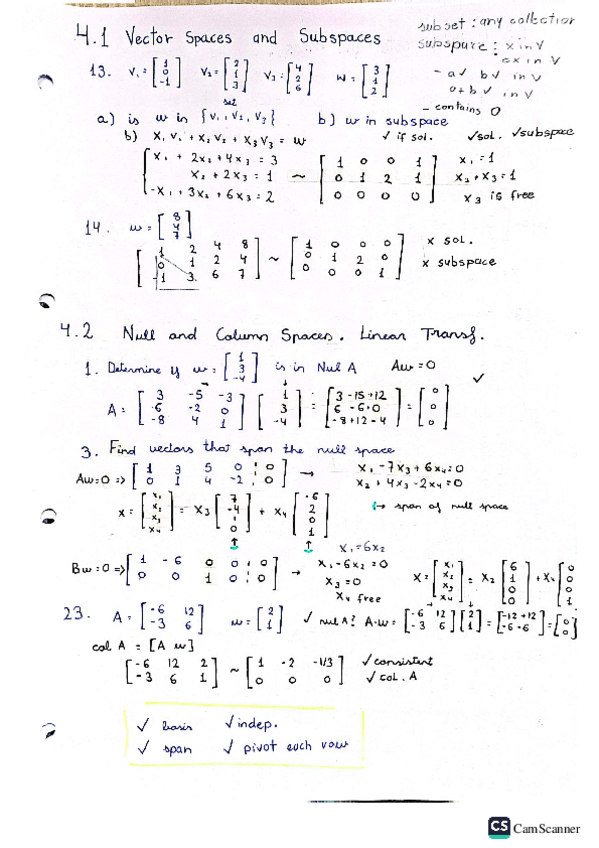 4.1 Vector Spaces and Subspaces
subset : any collection
subspace : x in V
cx in V
- a✓ b✓ in V
a+b ✓ in V
- contains 0
13. V₁ = [1 0 -1] V₂ = [2 1 3] V₃ = [4 2 6] w = [3 1 2]
set
a) is w in {V₁, V₂, V₃} b) w in subspace
b) X₁V₁ + X₂V₂ + X₃V₃ = w ✓ if sol. ✓sol. ✓subspace
{ x₁ + 2x₂ + 4x₃ = 3
x₂ + 2x₃ = 1
-x₁ + 3x₂ + 6x₃ = 2
~ [1 0 0 1
0 1 2 1
0 0 0 0]
x₁ = 1
x₂ + x₃ = 1
x₃ is free
14. w = [8 4 7]
[1 2 4 8
0 1 2 4
-1 3 6 7]
~ [1 0 0 0
0 1 2 0
0 0 0 1]
x sol.
x subspace
4.2 Null and Column Spaces. Linear Transf.
1. Determine if w = [1 3 -4] is in Nul A Aw = 0
✓
A = [3 -5 -3
6 -2 0
-8 4 1]
[1 3 -4] = [3 -15 +12
6 -6+0
-8+12-4] = [0 0 0]
3. Find vectors that span the null space
Aw=0 => [1 3 5 0 ¦ 0
0 1 4 -2 ¦ 0] →
x₁ - 7x₃ + 6x₄ = 0
x₂ + 4x₃ - 2x₄ = 0
x = [x₁ x₂ x₃ x₄] = x₃ [7 -4 1 0] + x₄ [-6 2 0 1]
↳ span of null space
x₁ = 6x₂
Bw=0 => [1 -6 0 0 ¦ 0
0 0 1 0 ¦ 0] →
x₁ - 6x₂ = 0
x₃ = 0
x₄ free
x = [x₁ x₂ x₃ x₄] = x₂ [6 1 0 0] + x₄ [0 0 0 1]
23. A = [-6 12
-3 6] w = [2 1] ✓ nul A? A·w = [-6 12
-3 6] [2 1] = [-12 +12
-6+6] = [0 0]
col A = [A w]
[-6 12 2
-3 6 1] ~ [1 -2 -1/3
0 0 0]
✓ consistent
✓ col. A
✓ basis ✓ indep.
✓ span ✓ pivot each row
CS CamScanner